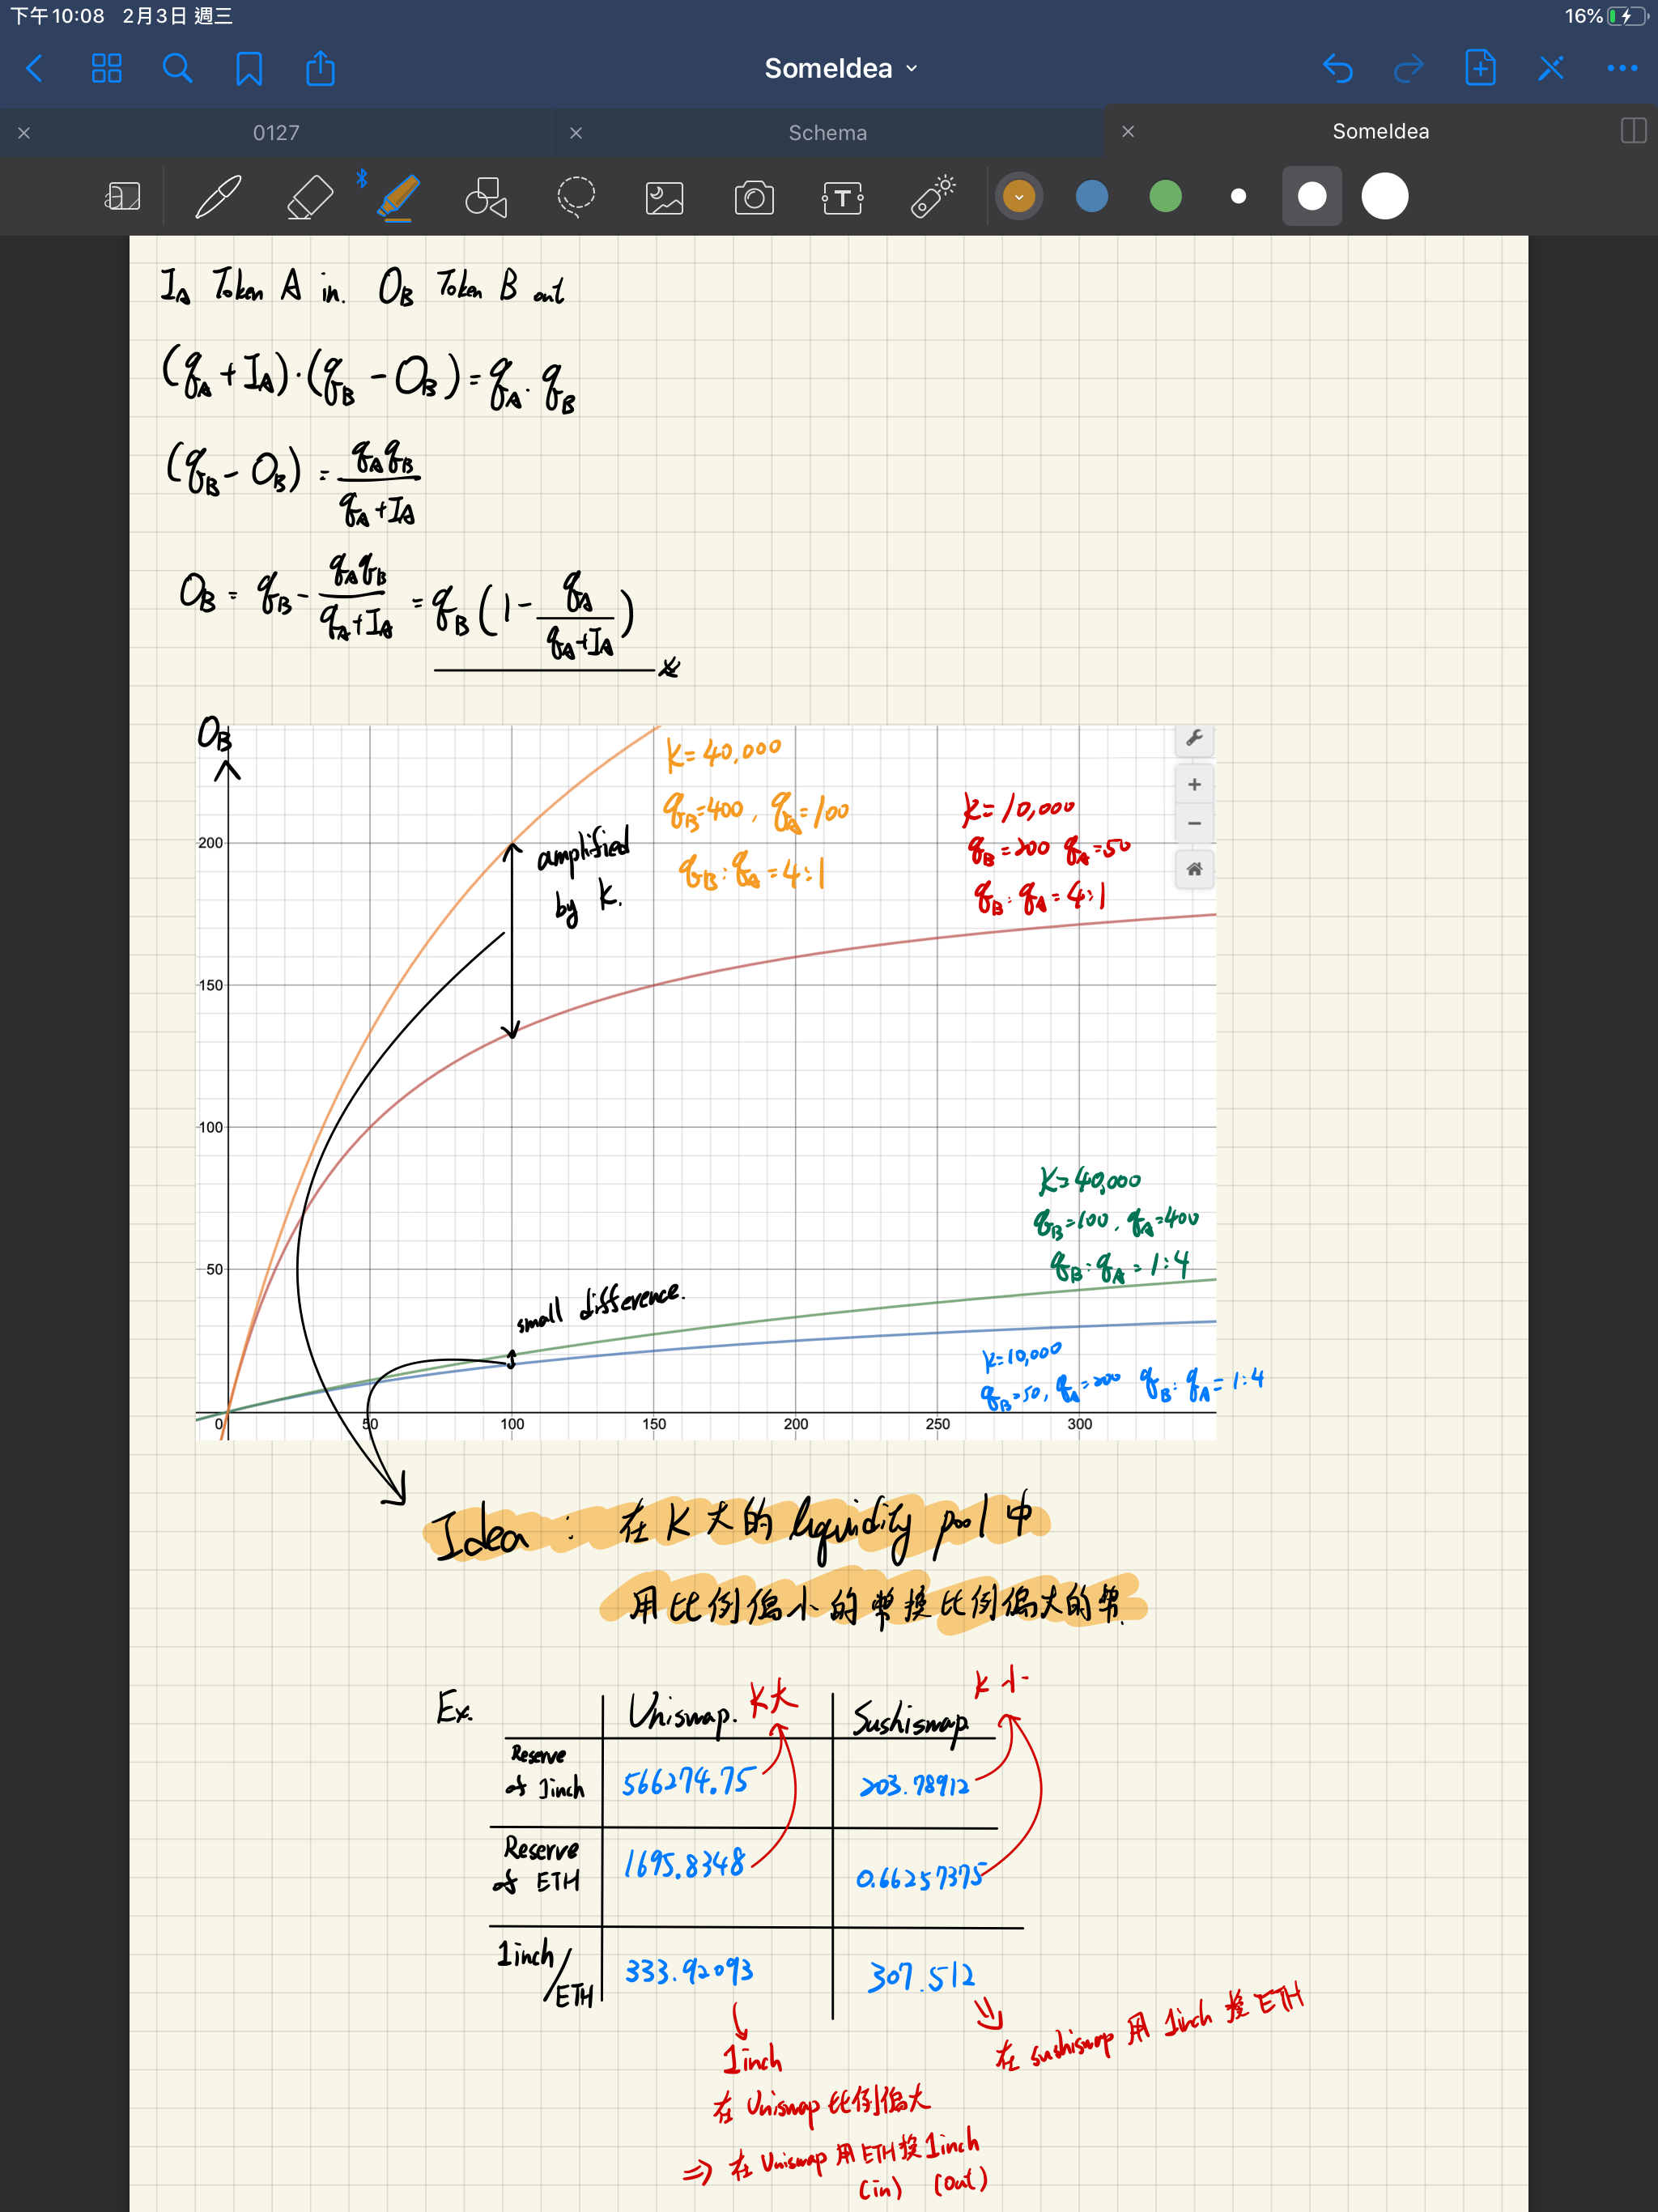 下午10:08 2月3日 週三
16%
SomeIdea
0127
Schema
SomeIdea
I_A Token A in. O_B Token B out
(q_A + I_A)·(q_B − O_B) = q_A · q_B
(q_B − O_B) = q_A q_B / (q_A + I_A)
O_B = q_B − q_A q_B / (q_A + I_A) = q_B (1 − q_A / (q_A + I_A))
O_B
K = 40,000
q_B = 400, q_A = 100
q_B : q_A = 4:1
K = 10,000
q_B = 200 q_A = 50
q_B : q_A = 4:1
amplified
by K.
200
150
100
50
K = 40,000
q_B = 100, q_A = 400
q_B : q_A = 1:4
small difference.
K = 10,000
q_B = 50, q_A = 200 q_B : q_A = 1:4
0 50 100 150 200 250 300
Idea : 在 K 大的 liquidity pool 中
用比例偏小的幣換比例偏大的幣.
Ex. Uniswap. K大 Sushiswap. K小
Reserve of 1inch 566274.75 203.78912
Reserve of ETH 1695.8348 0.66257375
1inch/ETH 333.92093 307.512
在 sushiswap 用 1inch 換 ETH
1inch
在 Uniswap 比例偏大
⇒ 在 Uniswap 用 ETH 換 1inch
(in) (out)